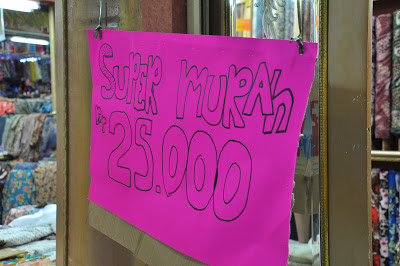 SUPER MURAh
Rp 25.000